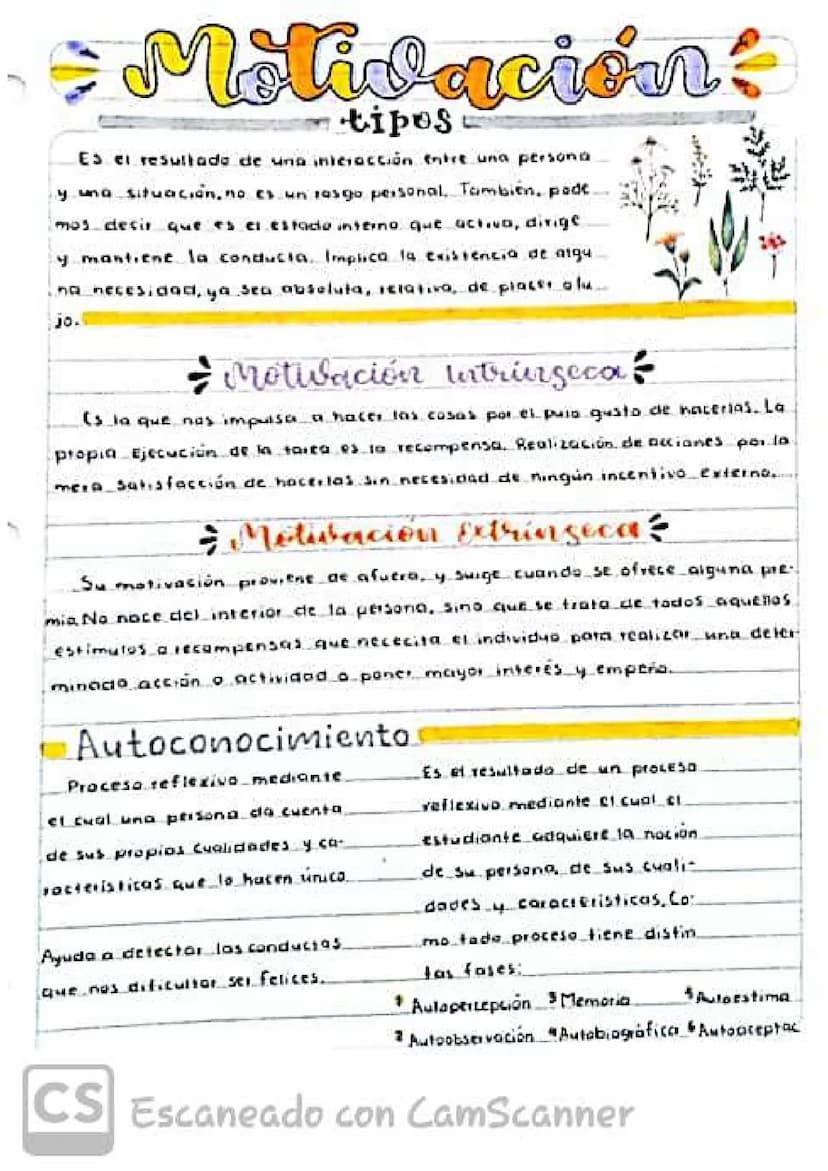 Motivación
tipos
Es el resultado de una interacción entre una persona
y una situación, no es un rasgo personal. También, pode
mos decir que es el estado interno que activa, dirige
y mantiene la conducta. Implica la existencia de algu
na necesidad, ya sea absoluta, relativa, de placer o lu
jo.
Motivación intrínseca
Es la que nos impulsa a hacer las cosas por el puro gusto de hacerlas. La
propia Ejecución de la tarea es la recompensa. Realización de acciones por la
mera satisfacción de hacerlas sin necesidad de ningún incentivo externo.
Motivación extrínseca
Su motivasión proviene de afuera, y surge cuando se ofrece alguna pre-
mia. No nace del interior de la persona, sino que se trata de todos aquellos
estímulos o recompensas que nececita el individuo para realizar una deter-
minada acción o actividad o poner mayor interés y empeño.
Autoconocimiento
Proceso reflexivo mediante
el cual una persona da cuenta
de sus propias cualidades y ca-
racterísticas que lo hacen único
Ayuda a detectar las conductas
que nos dificultar ser felices.
Es el resultado de un proceso
reflexivo mediante el cual el
estudiante adquiere la noción
de su persona, de sus cuali-
dades y características. Co-
mo todo proceso tiene distin
tas fases:
1 Autopercepción 3 Memoria 5 Autoestima
2 Autoobservación 4 Autobiográfica 6 Autoaceptac
CS Escaneado con CamScanner